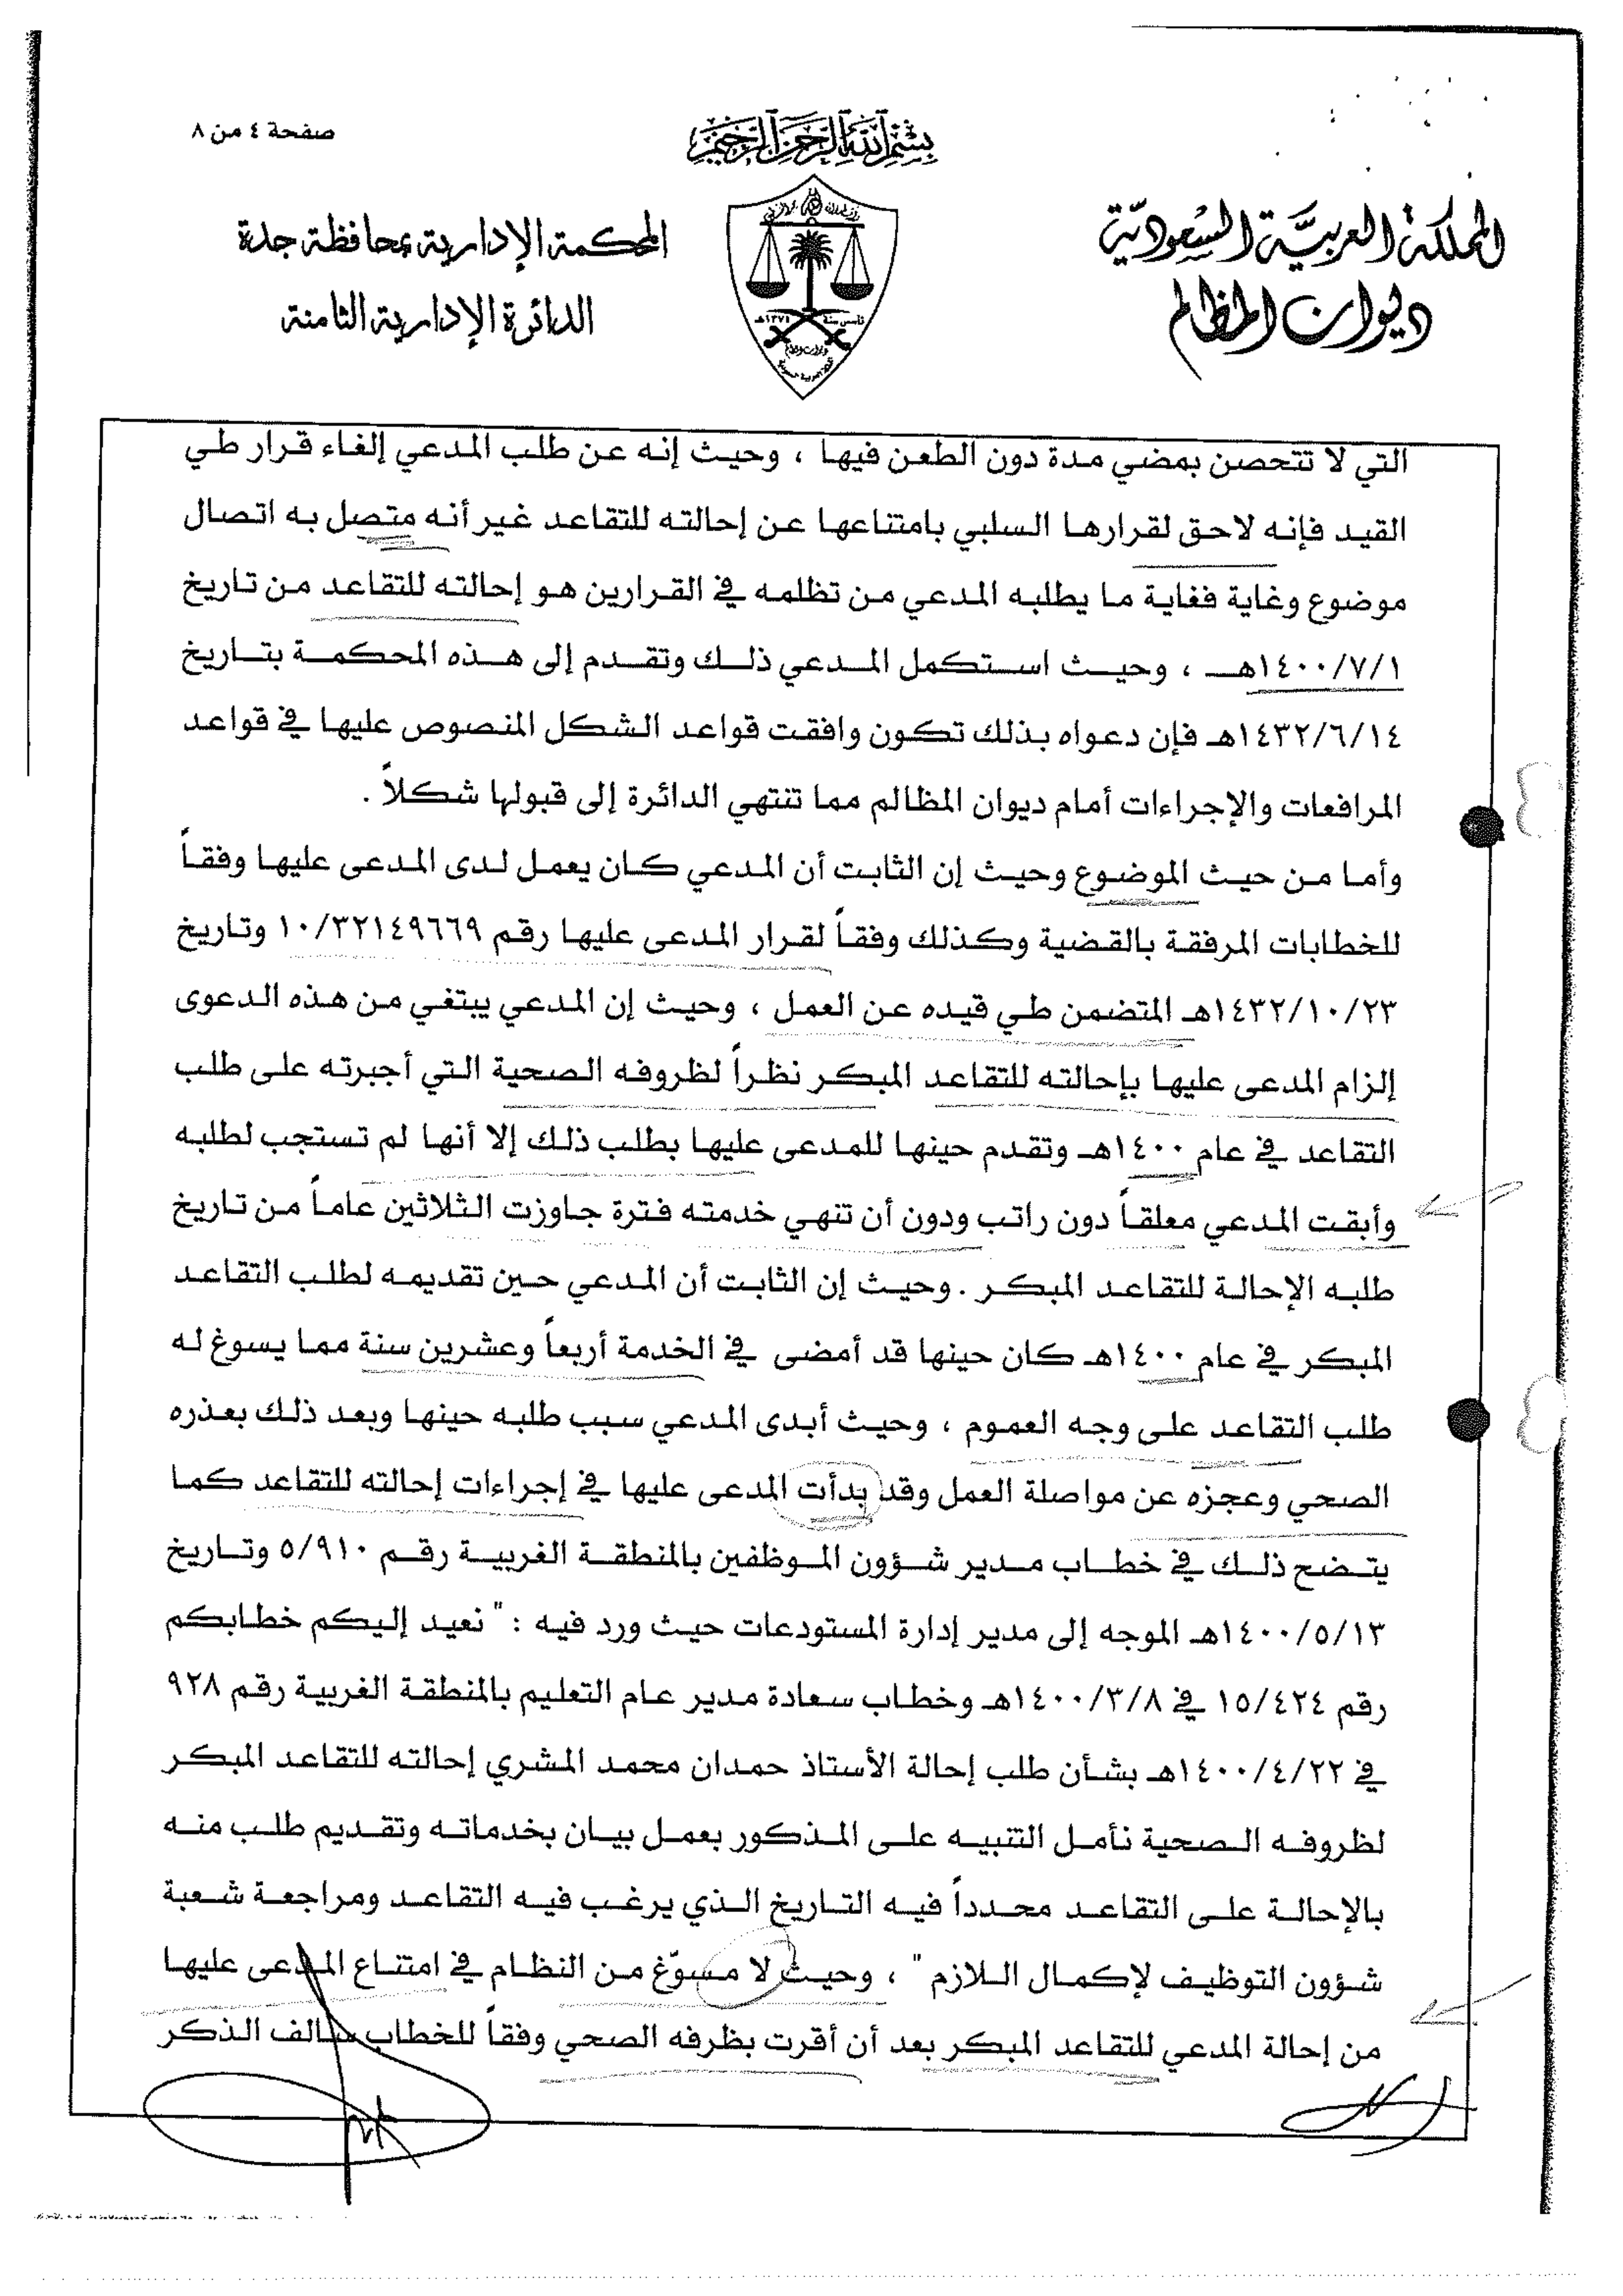 صفحة ٤ من ٨
بسم الله الرحمن الرحيم
المملكة العربية السعودية
ديوان المظالم
المحكمة الإدارية بمحافظة جدة
الدائرة الإدارية الثامنة
تأسس سنة ١٣٧٤هـ
التي لا تتحصن بمضي مدة دون الطعن فيها ، وحيث إنه عن طلب المدعي إلغاء قرار طي
القيد فإنه لاحق لقرارها السلبي بامتناعها عن إحالته للتقاعد غير أنه متصل به اتصال
موضوع وغاية فغاية ما يطلبه المدعي من تظلمه في القرارين هو إحالته للتقاعد من تاريخ
١٤٠٠/٧/١هـ ، وحيث استكمل المدعي ذلك وتقدم إلى هذه المحكمة بتاريخ
١٤٣٢/٦/١٤هـ فإن دعواه بذلك تكون وافقت قواعد الشكل المنصوص عليها في قواعد
المرافعات والإجراءات أمام ديوان المظالم مما تنتهي الدائرة إلى قبولها شكلاً .
وأما من حيث الموضوع وحيث إن الثابت أن المدعي كان يعمل لدى المدعى عليها وفقاً
للخطابات المرفقة بالقضية وكذلك وفقاً لقرار المدعى عليها رقم ١٠/٣٢١٤٩٦٦٩ وتاريخ
١٤٣٢/١٠/٢٣هـ المتضمن طي قيده عن العمل ، وحيث إن المدعي يبتغي من هذه الدعوى
إلزام المدعى عليها بإحالته للتقاعد المبكر نظراً لظروفه الصحية التي أجبرته على طلب
التقاعد في عام ١٤٠٠هـ وتقدم حينها للمدعى عليها بطلب ذلك إلا أنها لم تستجب لطلبه
وأبقت المدعي معلقاً دون راتب ودون أن تنهي خدمته فترة جاوزت الثلاثين عاماً من تاريخ
طلبه الإحالة للتقاعد المبكر . وحيث إن الثابت أن المدعي حين تقديمه لطلب التقاعد
المبكر في عام ١٤٠٠هـ كان حينها قد أمضى في الخدمة أربعاً وعشرين سنة مما يسوغ له
طلب التقاعد على وجه العموم ، وحيث أبدى المدعي سبب طلبه حينها وبعد ذلك بعذره
الصحي وعجزه عن مواصلة العمل وقد بدأت المدعى عليها في إجراءات إحالته للتقاعد كما
يتضح ذلك في خطاب مدير شؤون الموظفين بالمنطقة الغربية رقم ٥/٩١٠ وتاريخ
١٤٠٠/٥/١٣هـ الموجه إلى مدير إدارة المستودعات حيث ورد فيه : " نعيد إليكم خطابكم
رقم ١٥/٤٢٤ في ١٤٠٠/٣/٨هـ وخطاب سعادة مدير عام التعليم بالمنطقة الغربية رقم ٩٢٨
في ١٤٠٠/٤/٢٢هـ بشأن طلب إحالة الأستاذ حمدان محمد المشري إحالته للتقاعد المبكر
لظروفه الصحية نأمل التنبيه على المذكور بعمل بيان بخدماته وتقديم طلب منه
بالإحالة على التقاعد محدداً فيه التاريخ الذي يرغب فيه التقاعد ومراجعة شعبة
شؤون التوظيف لإكمال اللازم " ، وحيث لا مسوّغ من النظام في امتناع المدعى عليها
من إحالة المدعي للتقاعد المبكر بعد أن أقرت بظرفه الصحي وفقاً للخطاب سالف الذكر